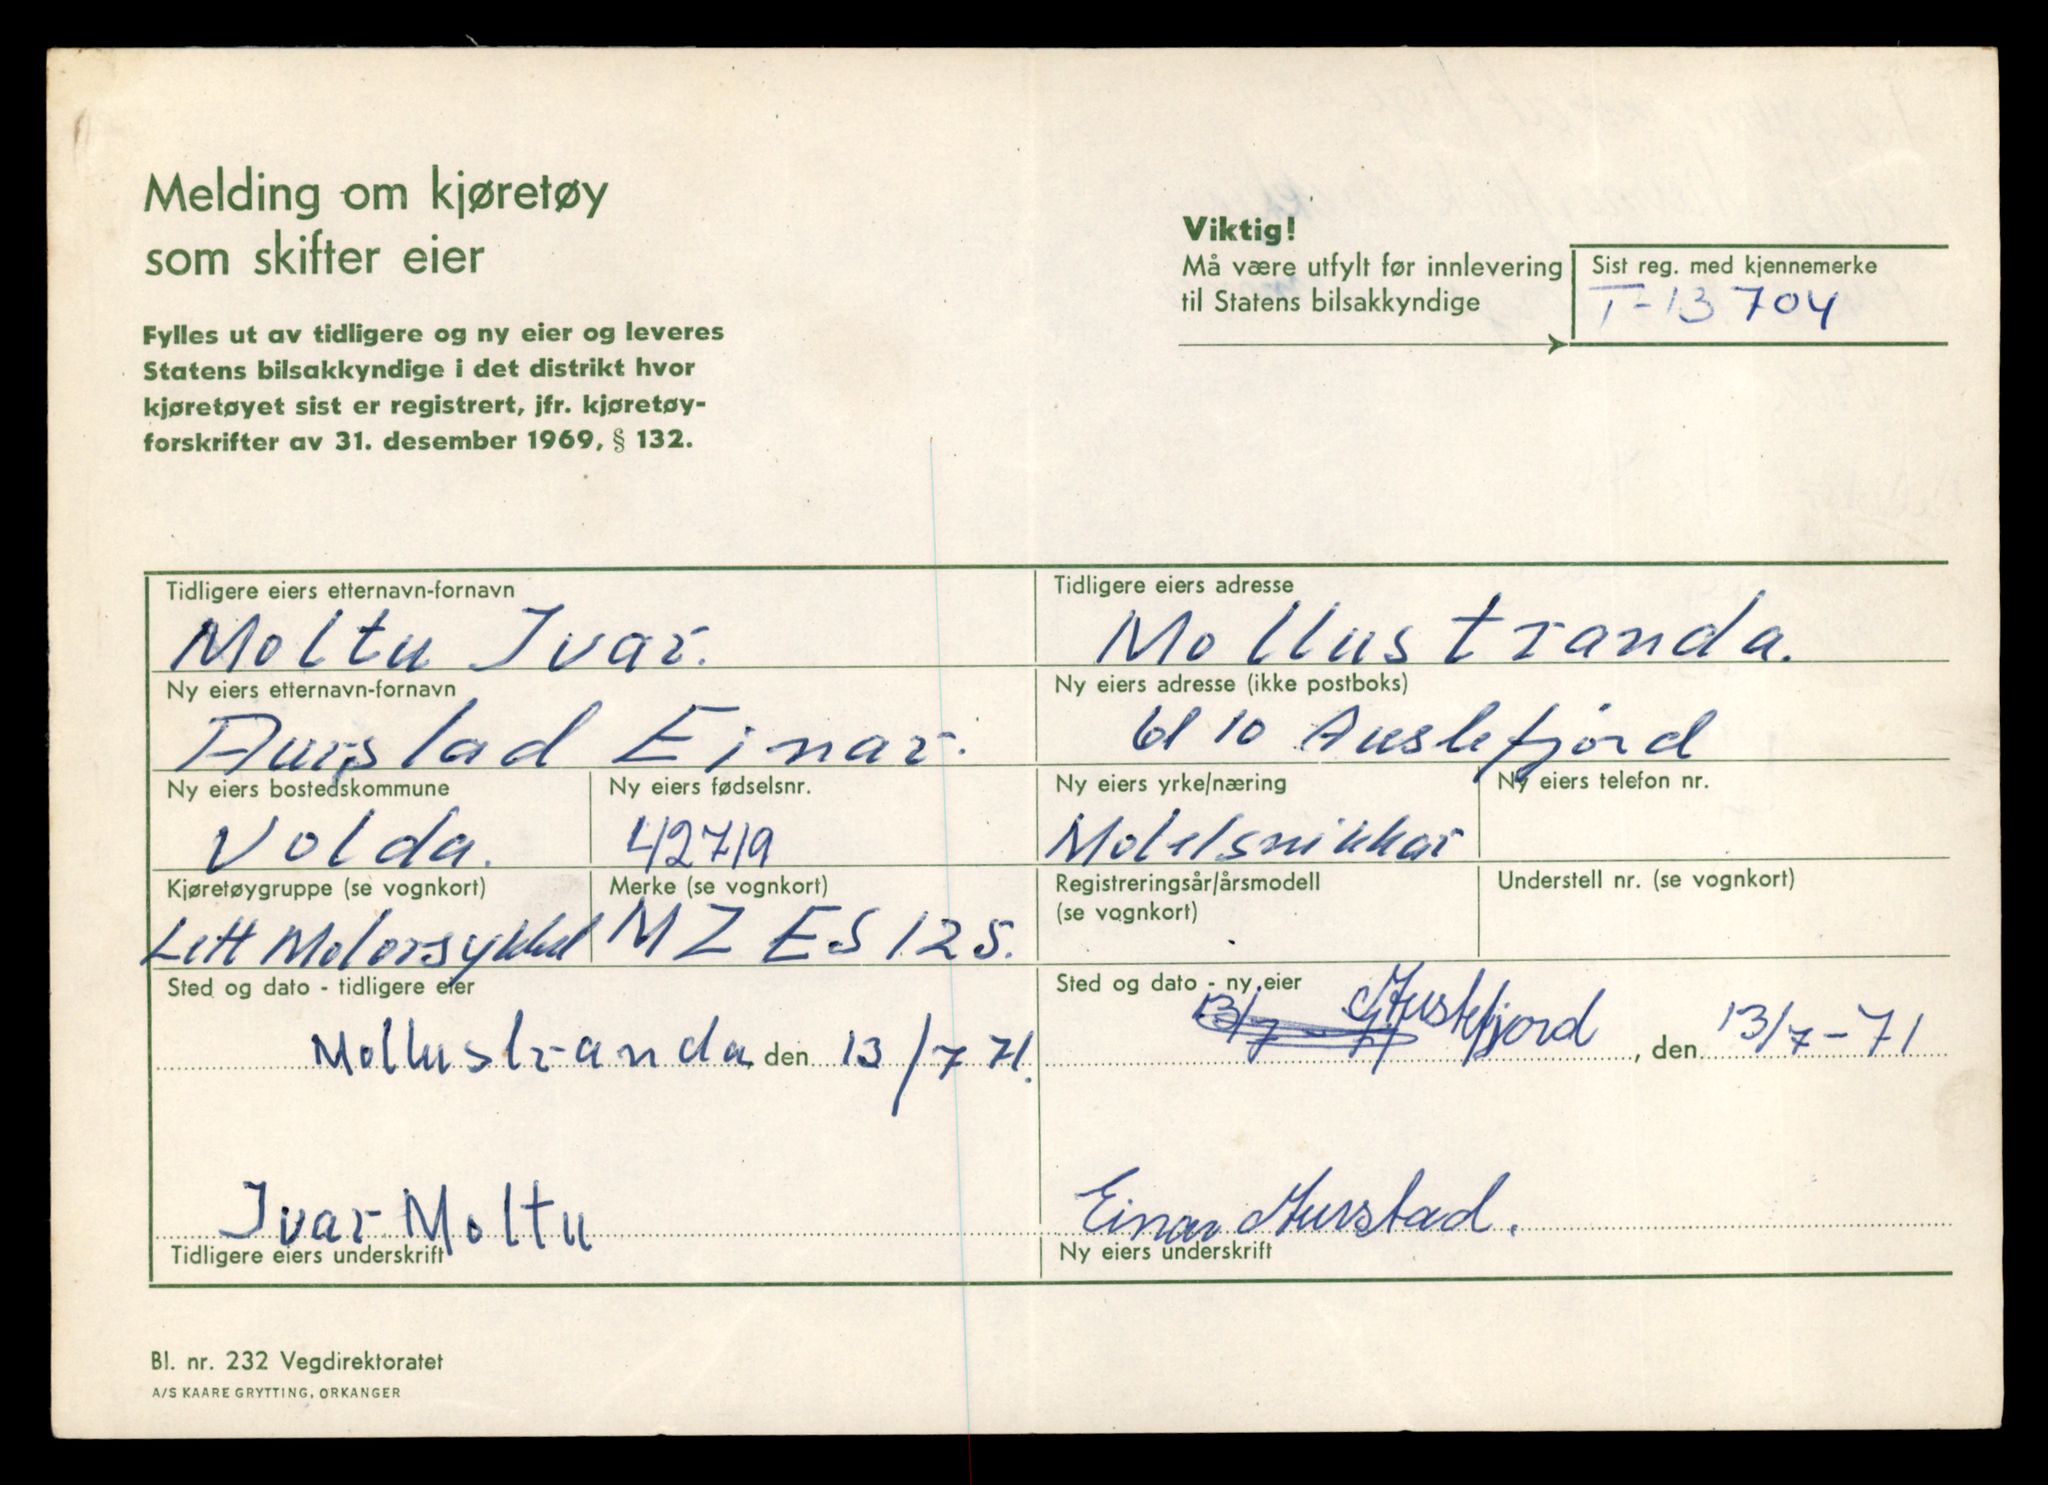 Melding om kjøretøy
som skifter eier
Fylles ut av tidligere og ny eier og leveres
Statens bilsakkyndige i det distrikt hvor
kjøretøyet sist er registrert, jfr. kjøretøy-
forskrifter av 31. desember 1969, § 132.
Viktig!
Må være utfylt før innlevering
til Statens bilsakkyndige
Sist reg. med kjennemerke
T-13704
Tidligere eiers etternavn-fornavn
Moltu Ivar.
Tidligere eiers adresse
Mollustranda.
Ny eiers etternavn-fornavn
Aurstad Einar.
Ny eiers adresse (ikke postboks)
6110 Austefjord
Ny eiers bostedskommune
Volda.
Ny eiers fødselsnr.
42719
Ny eiers yrke/næring
Mobelsnikkar
Ny eiers telefon nr.
Kjøretøygruppe (se vognkort)
Lett Motorsykkel
Merke (se vognkort)
MZ ES 125.
Registreringsår/årsmodell
(se vognkort)
Understell nr. (se vognkort)
Sted og dato - tidligere eier
Mollustranda, den 13/7 71.
Sted og dato - ny eier
Austefjord, den 13/7-71
Ivar Moltu
Tidligere eiers underskrift
Einar Aurstad.
Ny eiers underskrift
Bl. nr. 232 Vegdirektoratet
A/S KAARE GRYTTING, ORKANGER